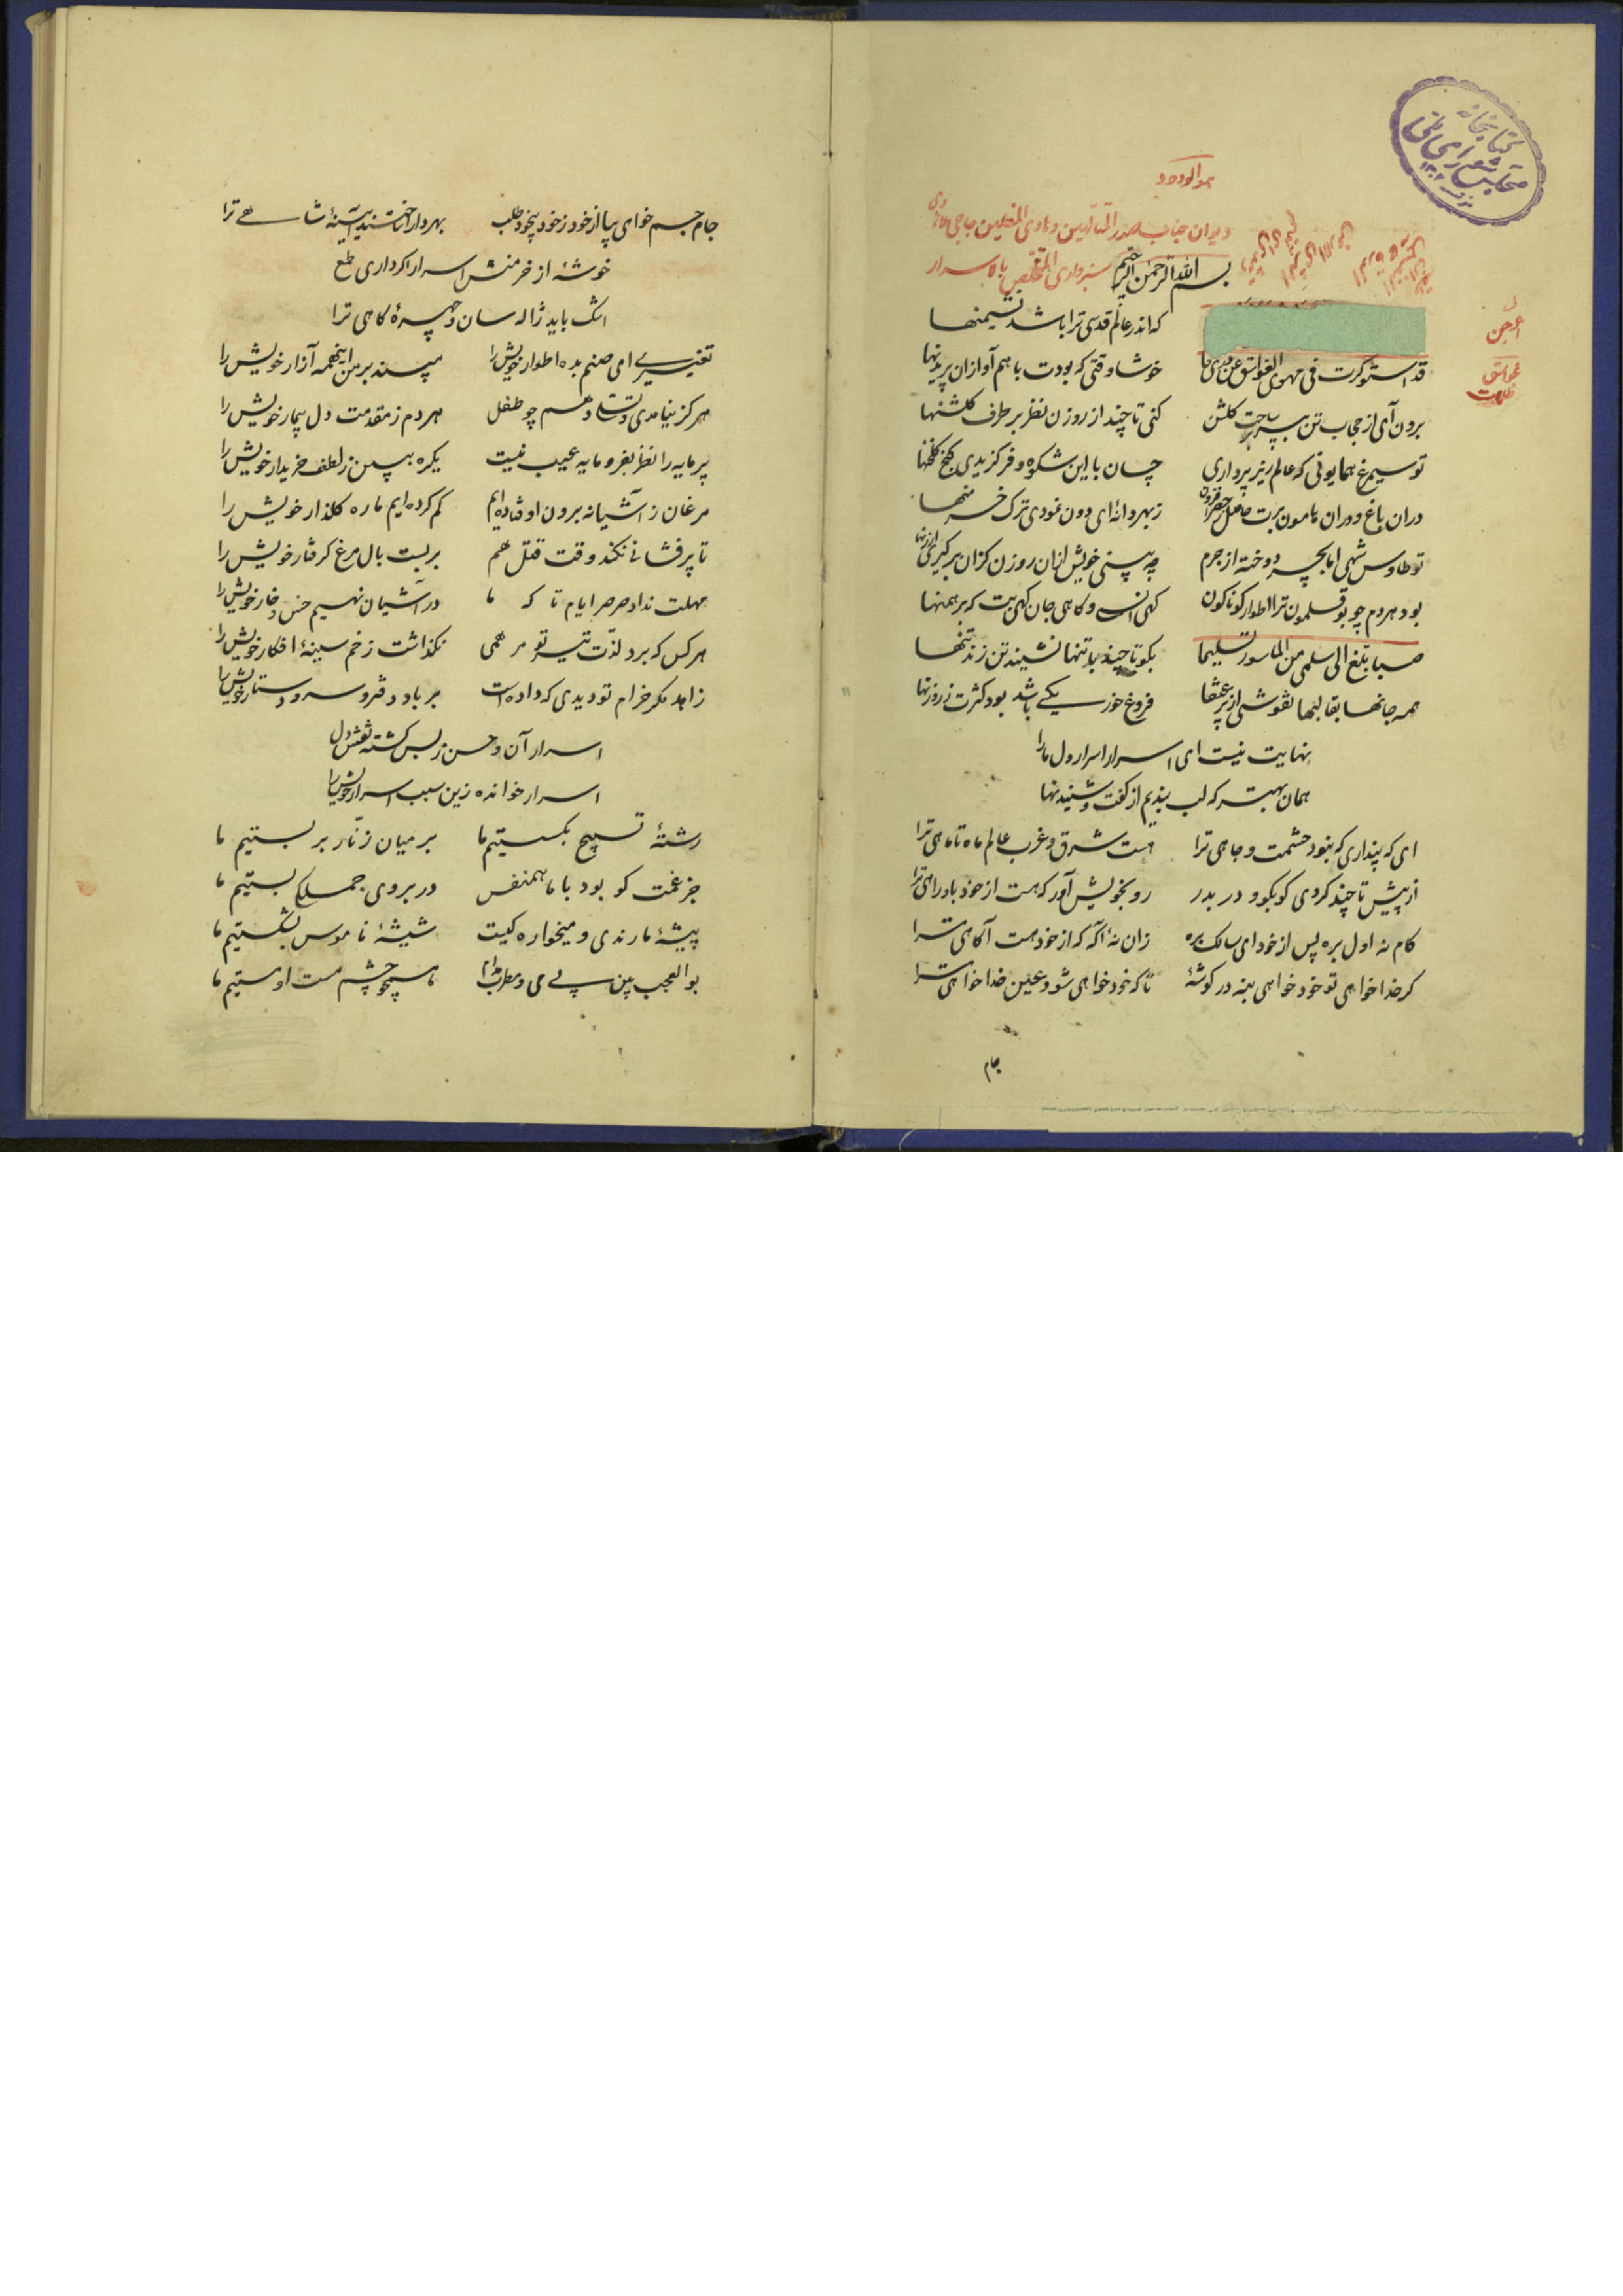 هو الودود
دیوان جناب صدر المتألهین وهادی المضلین حاجی ملا هادی
سبزواری المتخلص باسرار
بسم الله الرحمن الرحیم
که اندر عالم قدسی ترا باشد نشیمنها
قد استوکرت فی مهوی الغواسق عن خوشا وقتی که بودت با هم آوازان پریدنها
برون آی از حجاب تن بپر بر ساحت کلشن کنی تا چند از روزن نظر بر طرف کلشنها
تو سیمرغ همایونی که عالم زیر پر داری چسان با این شکوه و فر کزیدی کنج کلخنها
دران باغ و دران هامون برت حاصل ز بهر دانهٔ ای دون نمودی ترک خرمنها
تو طاوس شهی اما بچه دوخته از جرم چه بینی خویش ازان روزن کزان برکیری ارزنها
بود هر دم چو بوقلمون ترا اطوار کوناکون کهی انسی و کاهی جان کهی بت که برهمنها
صبا بلغ الی سلمی من المأسور تسلیما بکو تا چند با تنها نشیند تن زند تنها
همه جانها بقالبها نقوشی از پر عنقا فروغ خور یکی باشد بود کثرت ز روزنها
نهایت نیست ای اسرار اسرار دل ما را
همان بهتر که لب بندیم از کفت و شنیدنها
ای که پنداری که نبود حشمت و جاهی ترا هست شرق و غرب عالم ماه تا ماهی ترا
از پیش تا چند کردی کو بکو و در بدر رو بخویش آور که هست از خود باو راهی ترا
کام نه اول بره پس از خود ای سالک بره زان نهٔ آکه که از خود هست آکاهی ترا
کر خدا خواهی تو خود خواهی بنه در کوشهٔ تا که خود خواهی شود عین خدا خواهی ترا
جام
اعرجن
غواسق
ظلمات
کتابخانه
مجلس شورای ملی
جام جم خواهی بیا از خود ز خود بیخود طلب بهر دارا ساختند آیینهٔ شاهی ترا
خوشهٔ از خرمنش اسرار اکر داری طمع
اشک باید ژاله سان و چهرهٔ کاهی ترا
تغییری ای صنم بده اطوار خویش را مپسند بر من اینهمه آزار خویش را
هرکز نیامدی و تسلی دهم چو طفل هر دم ز مقدمت دل بیمار خویش را
پرمایه را نظر بفرومایه عیب نیست یکره ببین ز لطف خریدار خویش را
مرغان ز آشیانه برون اوفتاده ایم کم کرده ایم ما ره کلذار خویش را
تا پر فشانی نکند وقت قتل هم بربست بال مرغ کرفتار خویش را
مهلت نداد صرصر ایام تا که ما در آشیان نهیم خس و خار خویش را
هر کس که برد لذت تیر تو مرهمی نکذاشت زخم سینهٔ افکار خویش را
زاهد مکر خرام تو دیدی که داده است بر باد دفتر و سر و دستار خویش را
اسرار آن و حسن ز بس کشته نقش دل
اسرار خوانده زین سبب اسرار خویش را
رشتهٔ تسبیح بکسستیم ما بر میان زنار بر بستیم ما
جز غمت کو بود با ما همنفس در بروی جملکی بستیم ما
پیشهٔ ما رندی و میخواره کیست شیشهٔ ناموس بشکستیم ما
بو العجب بین بی می و مطرب مدام همچو چشم مست او مستیم ما